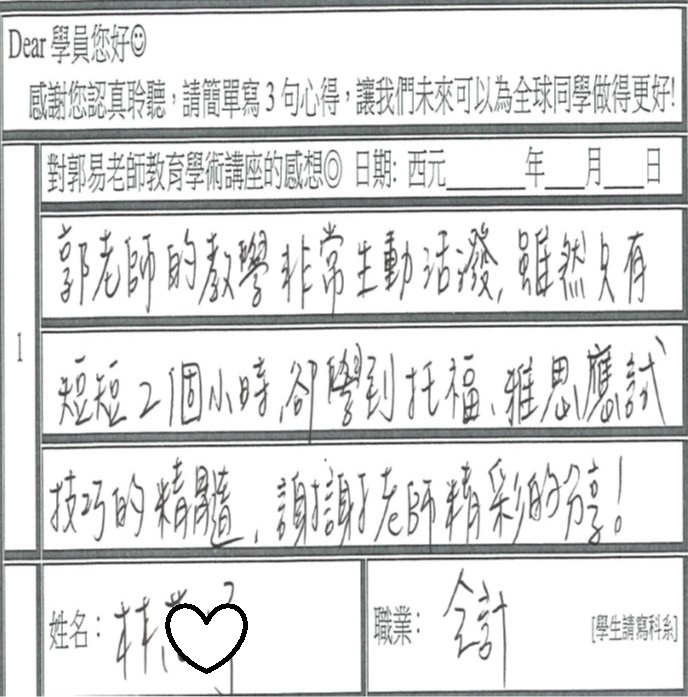 Dear 學員您好☺
感謝您認真聆聽，請簡單寫3句心得，讓我們未來可以為全球同學做得更好!
對郭易老師教育學術講座的感想◎ 日期: 西元______年___月___日
1
郭老師的教學非常生動活潑,雖然只有
短短2個小時,卻學到托福、雅思應試
技巧的精髓,謝謝老師精彩的分享!
姓名：林
職業：會計 [學生請寫科系]